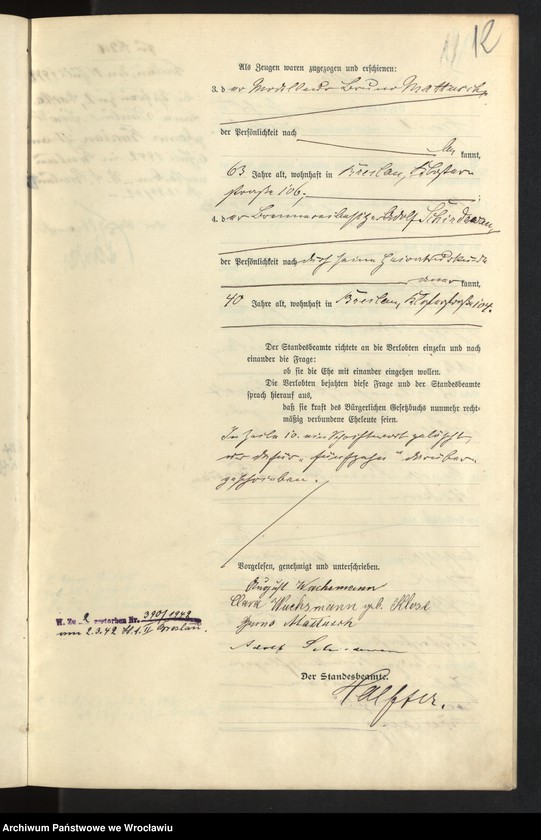 12
Als Zeugen waren zugezogen und erschienen:
3. der Modelleur Bruno Mattusch,
der Persönlichkeit nach
kannt,
63 Jahre alt, wohnhaft in Breslau, Kloster-
straße 106;
4. der Adolf
der Persönlichkeit nach durch seine Heiratsurkunde
anerkannt,
40 Jahre alt, wohnhaft in Breslau, Klosterstraße 104.
Der Standesbeamte richtete an die Verlobten einzeln und nach
einander die Frage:
ob sie die Ehe mit einander eingehen wollen.
Die Verlobten bejahten diese Frage und der Standesbeamte
sprach hierauf aus,
daß sie kraft des Bürgerlichen Gesetzbuchs nunmehr recht-
mäßig verbundene Eheleute seien.
In Zeile 10 ein Schriftwort gelöscht,
dafür „fünfzehn“ darüber
geschrieben.
Vorgelesen, genehmigt und unterschrieben.
August Wachsmann
Clara Wachsmann geb. Klose
Bruno Mattusch
Adolf
Der Standesbeamte.
W. Zu 2 gestorben Nr. 3901/1942
am 2.3.42 St. A. II Breslau.
Archiwum Państwowe we Wrocławiu